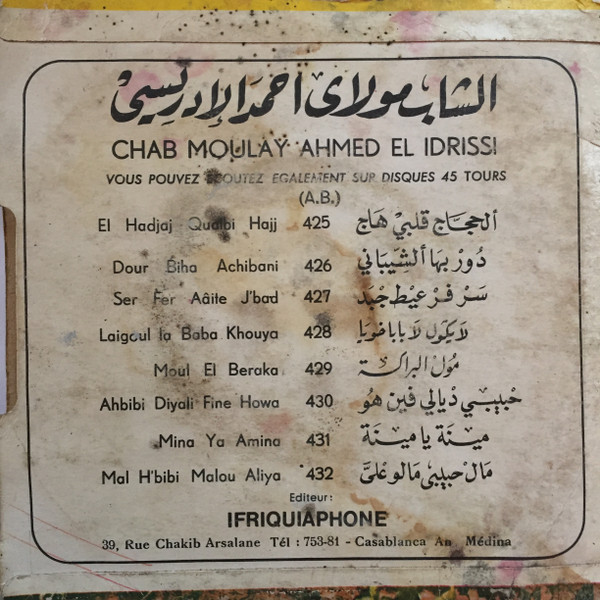 الشاب مولاي احمد الإدريسي
CHAB MOULAY AHMED EL IDRISSI
VOUS POUVEZ ECOUTEZ EGALEMENT SUR DISQUES 45 TOURS
(A.B.)
El Hadjaj Qualbi Hajj 425 الحجاج قلبي هاج
Dour Biha Achibani 426 دور بها الشيباني
Ser Fer Aâite J'bad 427 سر فر عيط جبد
Laigoul la Baba Khouya 428 لا يكول لا بابا خويا
Moul El Beraka 429 مول البراكة
Ahbibi Diyali Fine Howa 430 حبيبي ديالي فين هو
Mina Ya Amina 431 مينة يا مينة
Mal H'bibi Malou Aliya 432 مال حبيبي مالو عليَّ
Editeur:
IFRIQUIAPHONE
39, Rue Chakib Arsalane Tél : 753-81 - Casablanca An. Médina